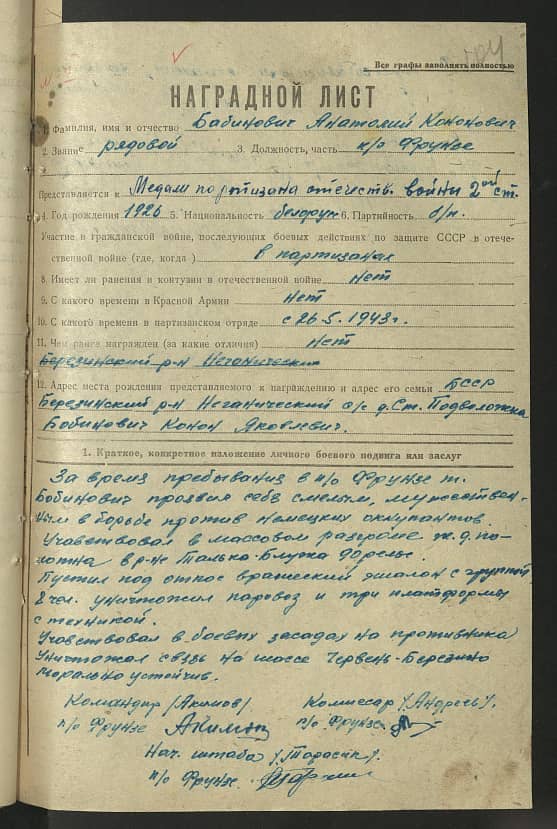 Все графы заполнять полностью
НАГРАДНОЙ ЛИСТ
1. Фамилия, имя и отчество Бабинович Анатолий Кононович
2. Звание рядовой 3. Должность, часть п/о Фрунзе
Представляется к Медали партизана отечеств. войны 2ой ст.
4. Год рождения 1926 5. Национальность белорус 6. Партийность б/п.
Участие в гражданской войне, последующих боевых действиях по защите СССР в отече-
ственной войне (где, когда) в партизанах
8. Имеет ли ранения и контузии в отечественной войне нет
9. С какого времени в Красной Армии нет
10. С какого времени в партизанском отряде с 26-5.1943г.
11. Чем ранее награжден (за какие отличия) нет
Березинский р-н Неганический
12. Адрес места рождения представляемого к награждению и адрес его семьи БССР
Березинский р-н Неганический с/с д.Ст. Подволожка
Бобинович Конон Яковлевич.
1. Краткое, конкретное изложение личного боевого подвига или заслуг
За время пребывания в п/о Фрунзе т.
Бобинович проявил себя смелым, мужествен-
ным в борьбе против немецких оккупантов.
Учавствовал в массовом разгроме ж.д. по-
лотна в р-не Талька-Блужа
Пустил под откос вражеский эшалон с группой
8 чел. уничтожил паровоз и три платформы
с техникой.
Учавствовал в боевых засадах на противника
уничтожал связь на шоссе Червень-Березино
морально устойчив.
Командир /Акимов/. Комиссар
п/о Фрунзе Акимов п/о Фрунзе
Нач. штаба
п/о Фрунзе